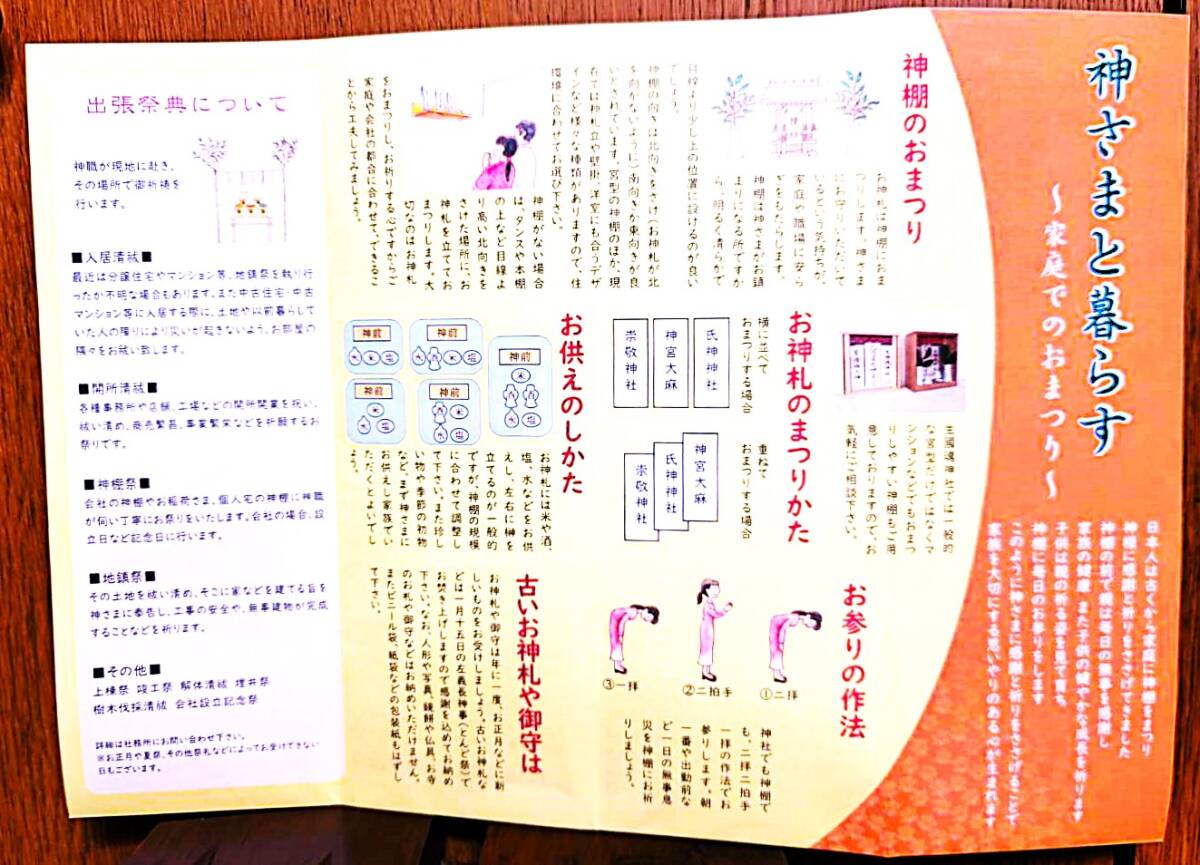 神さまと暮らす
〜家庭でのおまつり〜
日本人は古くから家庭に神棚をまつり
神棚に感謝と祈りをささげてきました
神棚の前で親は毎日の無事を感謝し
家族の健康、また子供の健やかな成長を祈ります
子供は親の祈る姿を見て育ち
神棚に毎日のお参りをします
このように神さまに感謝と祈りをささげることで
家族を大切にする思いやりのある心が生まれます
神棚のおまつり
お神札は神棚におま
つりします。神さま
にお守りいただいて
いるという気持ちが、
家庭、職場に安ら
ぎをもたらします。
神棚は神さまがお鎮
まりになる所ですか
ら、明るく清らかで
目線より少し上の位置に設けるのが良い
でしょう。
神棚の向きは北向きをさけお神札が北
を向かないように、南向きか東向きが良
いとされています。宮型の神棚のほか、現
在では神札立や壁掛、洋室にも合うデザ
インなど様々な種類がありますので、住
環境に合わせてお選び下さい。
神棚がない場合
は、タンスや本棚
の上など目線よ
り高い北向きを
さけた場所に、お
神札を立ててお
まつりします。大
切なのはお神札
をおまつりし、お祈りする心ですからご
家庭や会社の都合に合わせて、できるこ
とから工夫してみましょう。
お神札のまつりかた
生國魂神社では一般的
な宮型だけではなくマ
ンションなどでもおまつ
りしやすい神棚もご用
意しておりますので、お
気軽にご相談下さい。
横に並べて
おまつりする場合
氏神神社
神宮大麻
崇敬神社
重ねて
おまつりする場合
神宮大麻
氏神神社
崇敬神社
お供えのしかた
神前
米
酒 酒
水 塩
神前
水 酒 米 酒 塩
神前
米
酒 酒
水 塩
神前
水 米 塩
神前
米
水 塩
お神札には米や酒、
塩、水などをお供
えし、左右に榊を
立てるのが一般的
ですが、神棚の規模
に合わせて調整し
て下さい。また珍し
い物や季節の初物
など、まず神さまに
お供えし家族でい
ただくとよいでし
ょう。
お参りの作法
①二拝
②二拍手
③一拝
神社でも神棚で
も、二拝二拍手
一拝の作法でお
参りします。朝
一番や出勤前な
ど一日の無事息
災を神棚にお祈
りしましょう。
古いお神札や御守は
お神札や御守は年に一度、お正月などに新
しいものをお受けしましょう。古いお神札な
どは一月十五日の左義長神事(とんど祭)で
お焚き上げしますので感謝を込めてお納め
下さい。なお、人形や写真、鏡餅や仏具、お寺
のお札や御守などはお納めいただけません。
またビニール袋、紙袋などの包装紙もはずし
て下さい。
出張祭典について
神職が現地に赴き、
その場所で御祈祷を
行います。
■入居清祓■
最近は分譲住宅やマンション等、地鎮祭を執り行
ったか不明な場合もあります。また中古住宅・中古
マンション等に入居する際に、土地や以前暮らして
いた人の障りにより災いが起きないよう、お部屋の
隅々をお祓い致します。
■開所清祓■
各種事務所や店舗、工場などの開所開業を祝い、
祓い清め、商売繁昌、事業繁栄などを祈願するお
祭りです。
■神棚祭■
会社の神棚やお稲荷さま、個人宅の神棚に神職
が伺い丁寧にお祭りをいたします。会社の場合、設
立日など記念日に行います。
■地鎮祭■
その土地を祓い清め、そこに家などを建てる旨を
神さまに奉告し、工事の安全や、無事建物が完成
することなどを祈ります。
■その他■
上棟祭 竣工祭 解体清祓 埋井祭
樹木伐採清祓 会社設立記念祭
詳細は社務所にお問い合わせ下さい。
※お正月や夏祭、その他祭礼などによってお受けできない
日もございます。